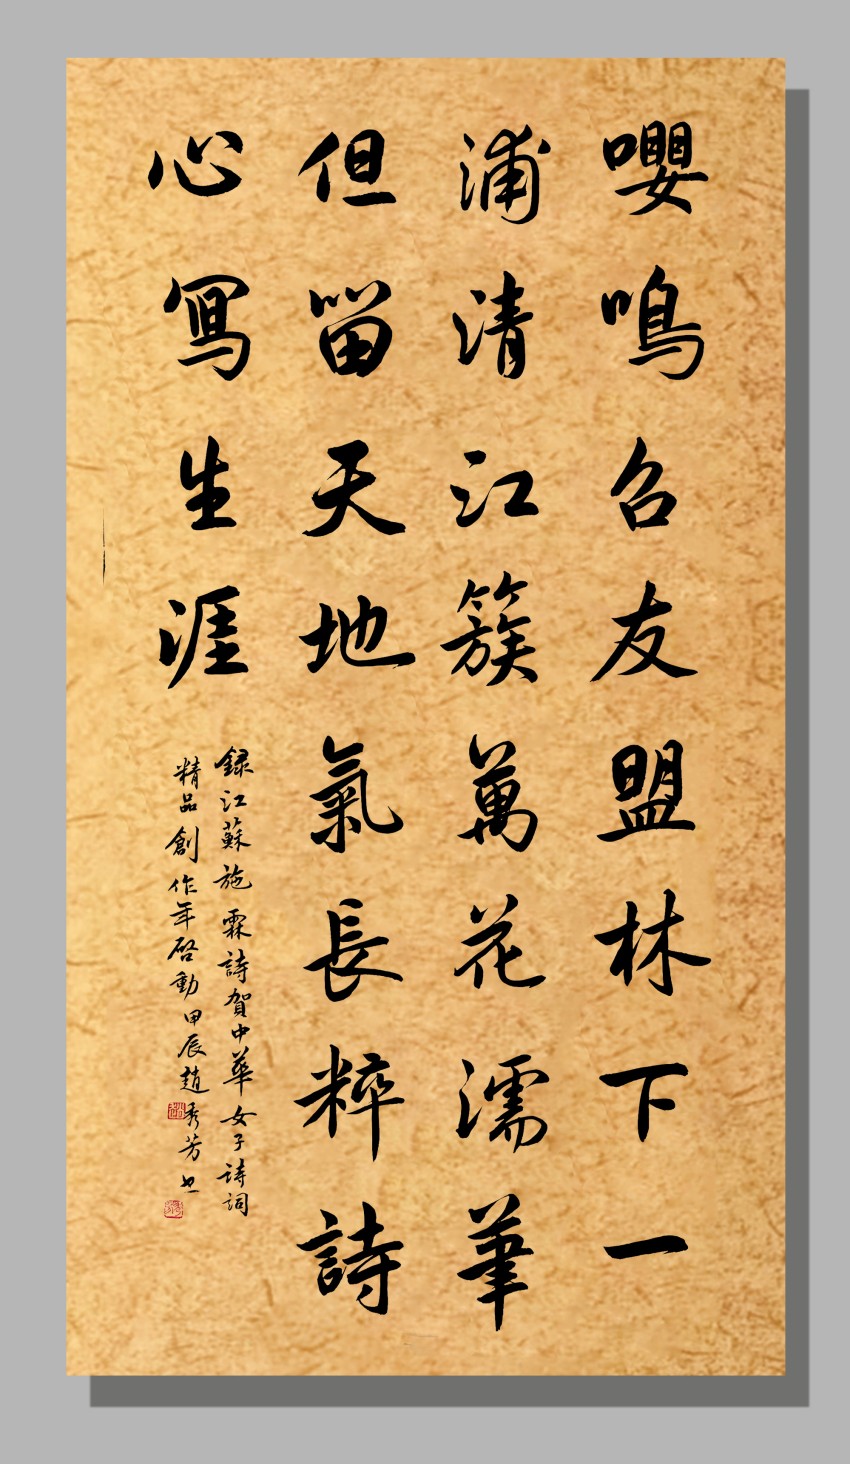 嚶鳴召友盟林下一
浦清江簇萬花濡筆
但留天地氣長粹詩
心寫生涯
録江蘇施霖詩賀中華女子詩詞
精品創作年啓動甲辰趙秀芳书